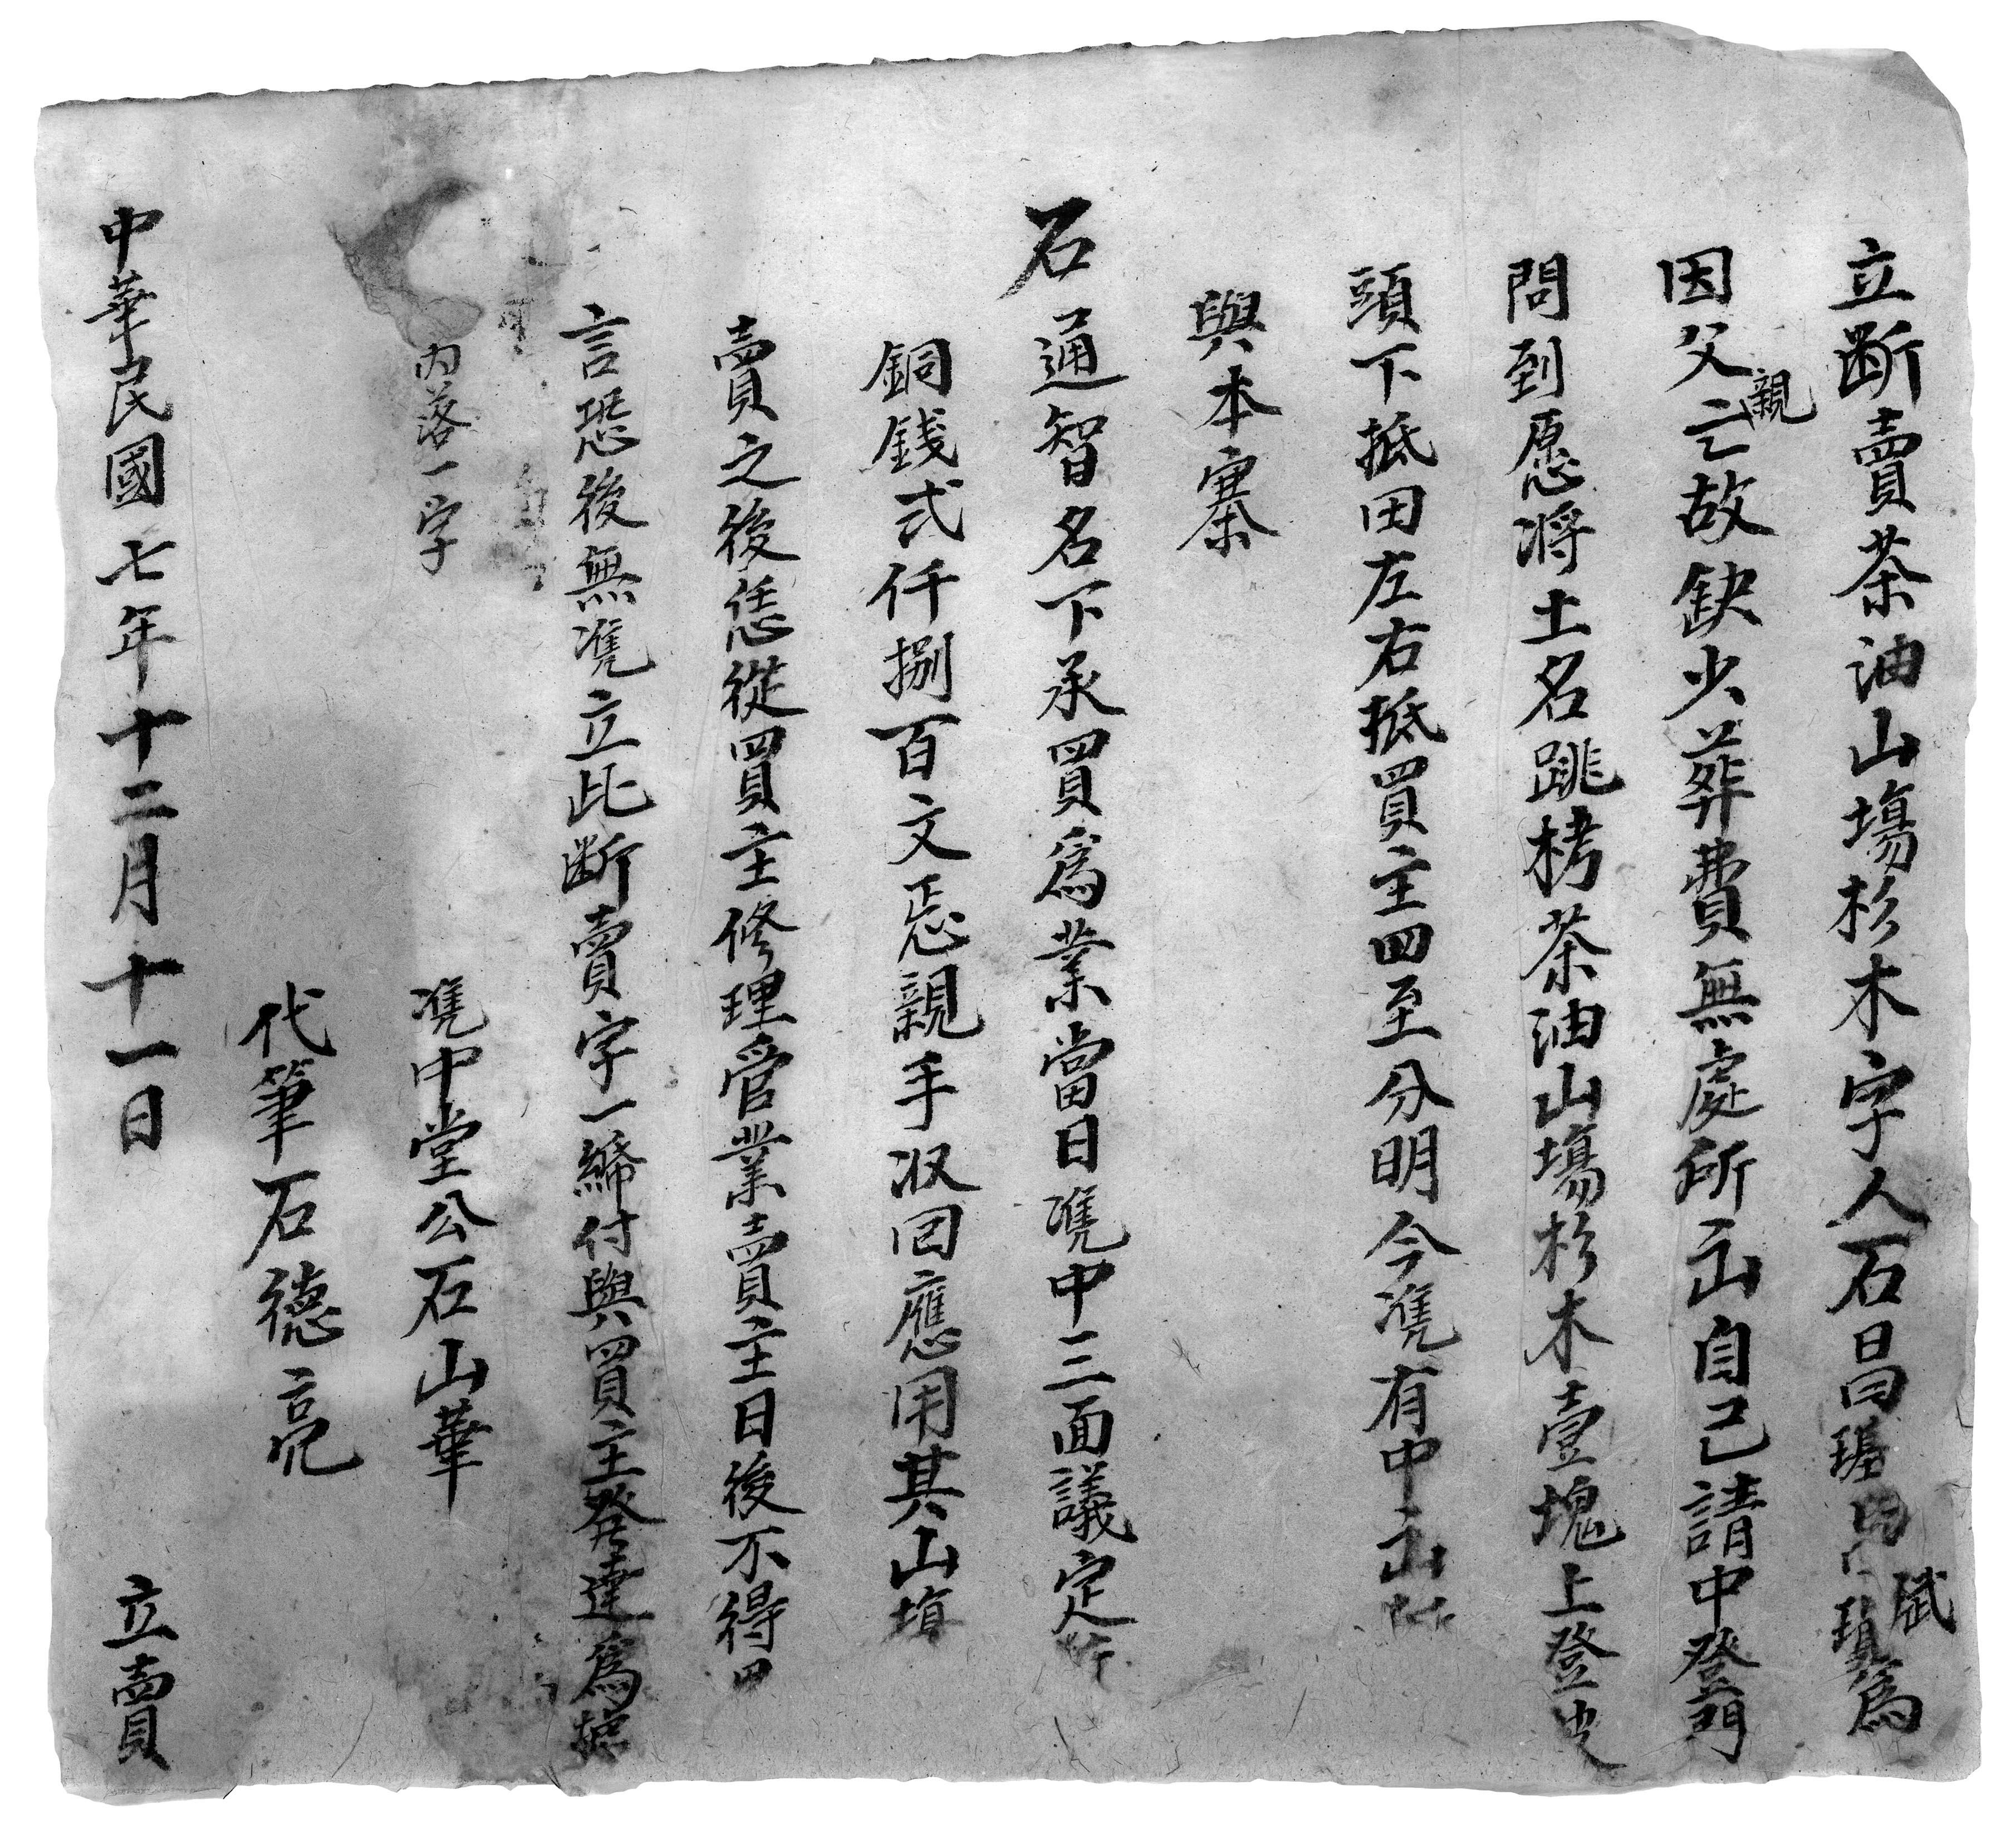 立断賣茶油山塲杉木字人石昌瑾為
因父親亡故缺少葬費無處所出自己請中登門
問到愿將土名跳栲茶油山塲杉木壹塊上登
頭下抵田左右抵買主四至分明今凴有中出
與本寨
石通智名下承買為業當日凴中三面議定
銅錢弍仟捌百文恁親手收回應用其山塤
賣之後恁從買主修理管業賣主日後不得
言恐後無凴立此断賣字一締付與買主發達為據
内落一字
凴中堂公石山華
代筆石德亮
中華民國七年十二月十一日 立賣